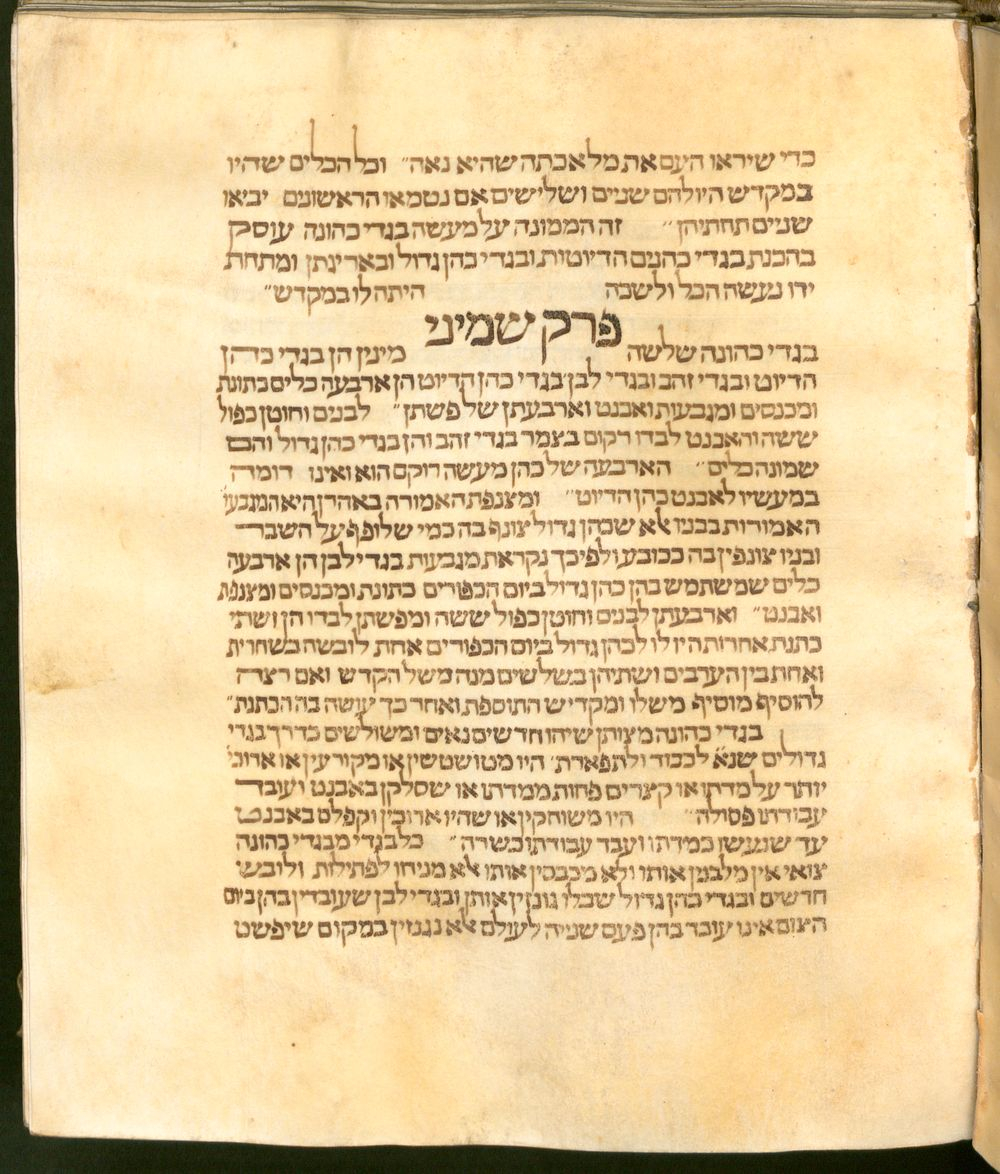 כדי שיראו העם את מלאכתה שהיא נאה״ וכל הכלים שהיו
במקדש היו להם שניים ושלישים אם נטמאו הראשונים יביאו
שניים תחתיהן״ זה הממונה על מעשה בגדי כהונה עוסק
בהכנת בגדי כהנים הדיוטות ובגדי כהן גדול ובאריגתן ומתחת
ידו נעשה הכל ולשכה היתה לו במקדש״
פרק שמיני
בגדי כהונה שלשה מינין הן בגדי כהן
הדיוט ובגדי זהב ובגדי לבן בגדי כהן הדיוט הן ארבעה כלים כתונת
ומכנסים ומגבעות ואבנט וארבעתן של פשתן״ לבנים וחוטן כפול
ששה והאבנט לבדו רקום בצמר בגדי זהב והן בגדי כהן גדול והם
שמונה כלים״ הארבעה של כהן מעשה רוקם הוא ואינו דומה
במעשיו לאבנט כהן הדיוט״ ומצנפת האמורה באהרן היא המגבעו׳
האמורות בבניו אלא שכהן גדול צונף בה כמי שלופף על השבר
ובניו צונפין בה ככובע ולפיכך נקראת מגבעות בגדי לבן הן ארבעה
כלים שמשתמש בהן כהן גדול ביום הכפורים כתונת ומכנסים ומצנפת
ואבנט״ וארבעתן לבנים וחוטן כפול ששה ומפשתן לבדו הן ושתי
כתנת אחרות היו לו לכהן גדול ביום הכפורים אחת לובשה בשחרית
ואחת בין הערבים ושתיהן בשלשים מנה משל הקדש ואם רצה
להוסיף מוסיף משלו ומקדיש התוספת ואחר כך עושה בה הכתנת״
בגדי כהונה מצותן שיהו חדשים נאים ומשולשים כדרך בגדי
גדולים שנא׳ לכבוד ולתפארת״ היו מטושטשין או מקורעין או ארוכי׳
יותר על מדתו או קצרים פחות ממדתו או שסלקן באבנט ועובד
עבודתו פסולה״ היו משוחקין או שהיו ארוכין וקפלם באבנט
עד שנעשו כמדתו ועבד עבודתו כשרה״ כל בגדי מבגדי כהונה
צואי אין מלבנין אותו ולא מכבסין אותו אלא מניחו לפתילות ולובש
חדשים ובגדי כהן גדול שבלו גונזין אותן ובגדי לבן שעובדין בהן ביום
הצום אינו עובד בהן פעם שניה לעולם אלא נגנזין במקום שיפשט